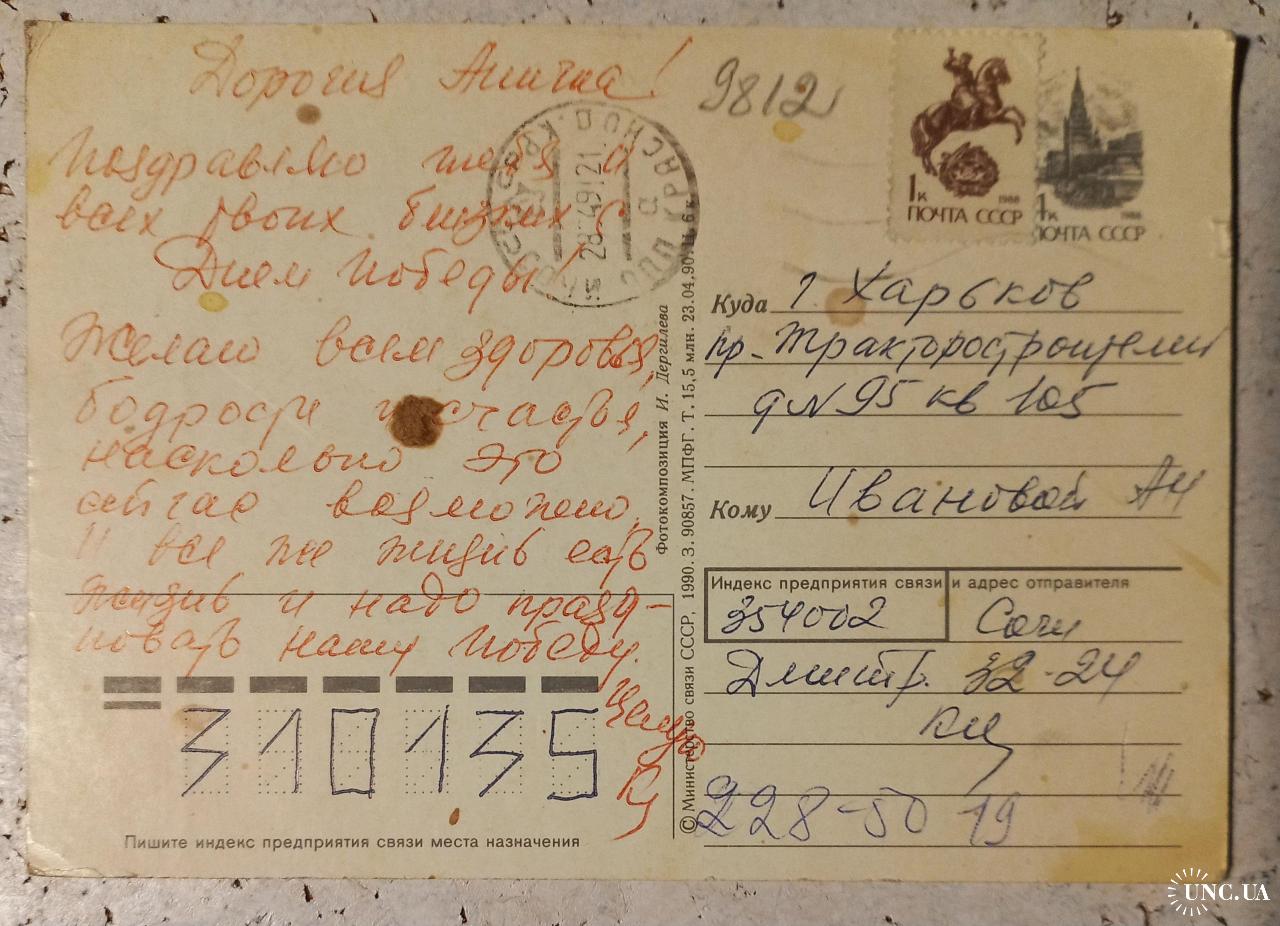 Дорогая Анечка!
Поздравляю тебя и
всех твоих близких с
Днем Победы!
Желаю всем здоровья,
бодрости и счастья,
насколько это
сейчас возможно.
И все же жизнь есть
жизнь и надо празд-
новать нашу Победу.
Целую
310135
Пишите индекс предприятия связи места назначения
Фотокомпозиция И. Дергилева
© Министерство связи СССР, 1990. З. 90857. МПФГ. Т. 15,5 млн. 23.04.90. Ц. 6 к.
9812
КРАСНОД.
1к 1988
ПОЧТА СССР
1к 1988
ПОЧТА СССР
Куда г Харьков
пр. Тракторостроителей
д N 95 кв 105
Кому Ивановой АН
Индекс предприятия связи и адрес отправителя
354002 Сочи
Дмитр. 32-24
228-50 19
UNC.UA